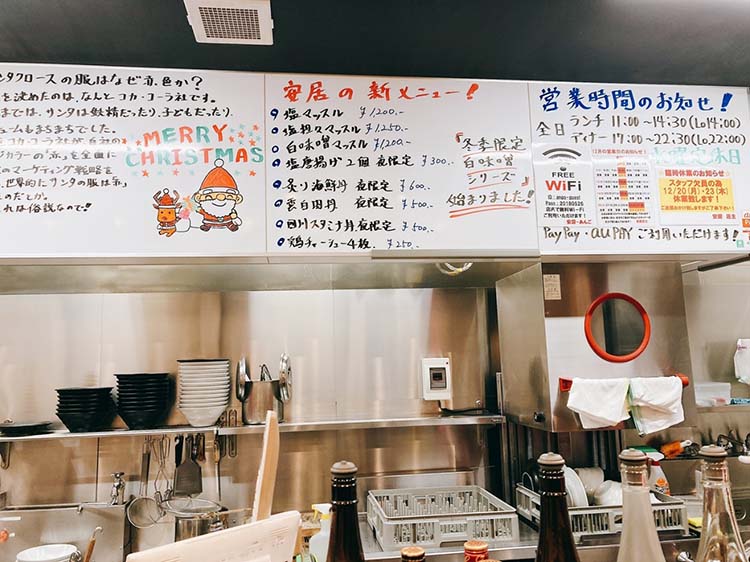 サンタクロースの服はなぜ赤色か?
を決めたのは、なんとコカ・コーラ社です。
までは、サンタは妖精だったり、子どもだったり、
ュームもまちまちでした。
コカコーラ社が
カラーの「赤」を全面に
のマーケティング戦略を
世界的にサンタの服は赤」
のだとか。
れは俗説なので!!
MERRY
CHRISTMAS
安居の新メニュー!
塩マッスル ¥1,200-
塩担々マッスル ¥1,250-
白味噌マッスル ¥1,200-
塩唐揚げ2個 夜限定 ¥300-
炙り海鮮丼 夜限定 ¥600-
夜限定 ¥500-
四川スタミナ丼 夜限定 ¥500-
鶏チャーシュー4枚 ¥250-
『冬季限定
白味噌
シリーズ』
始まりました!
営業時間のお知せ!
全日 ランチ 11:00~14:30(Lo14:00)
ディナー 17:00~22:30(Lo22:00)
FREE
WiFi
Pass : 20180526
ご利用いただけます!
安居-あんご
12月の営業のお知らせ
臨時休業のお知らせ
スタッフ欠員の為
12/20(月)・23(木)
休業致します!
安居 店主
休日
PayPay・auPAY ご利用いただけます!